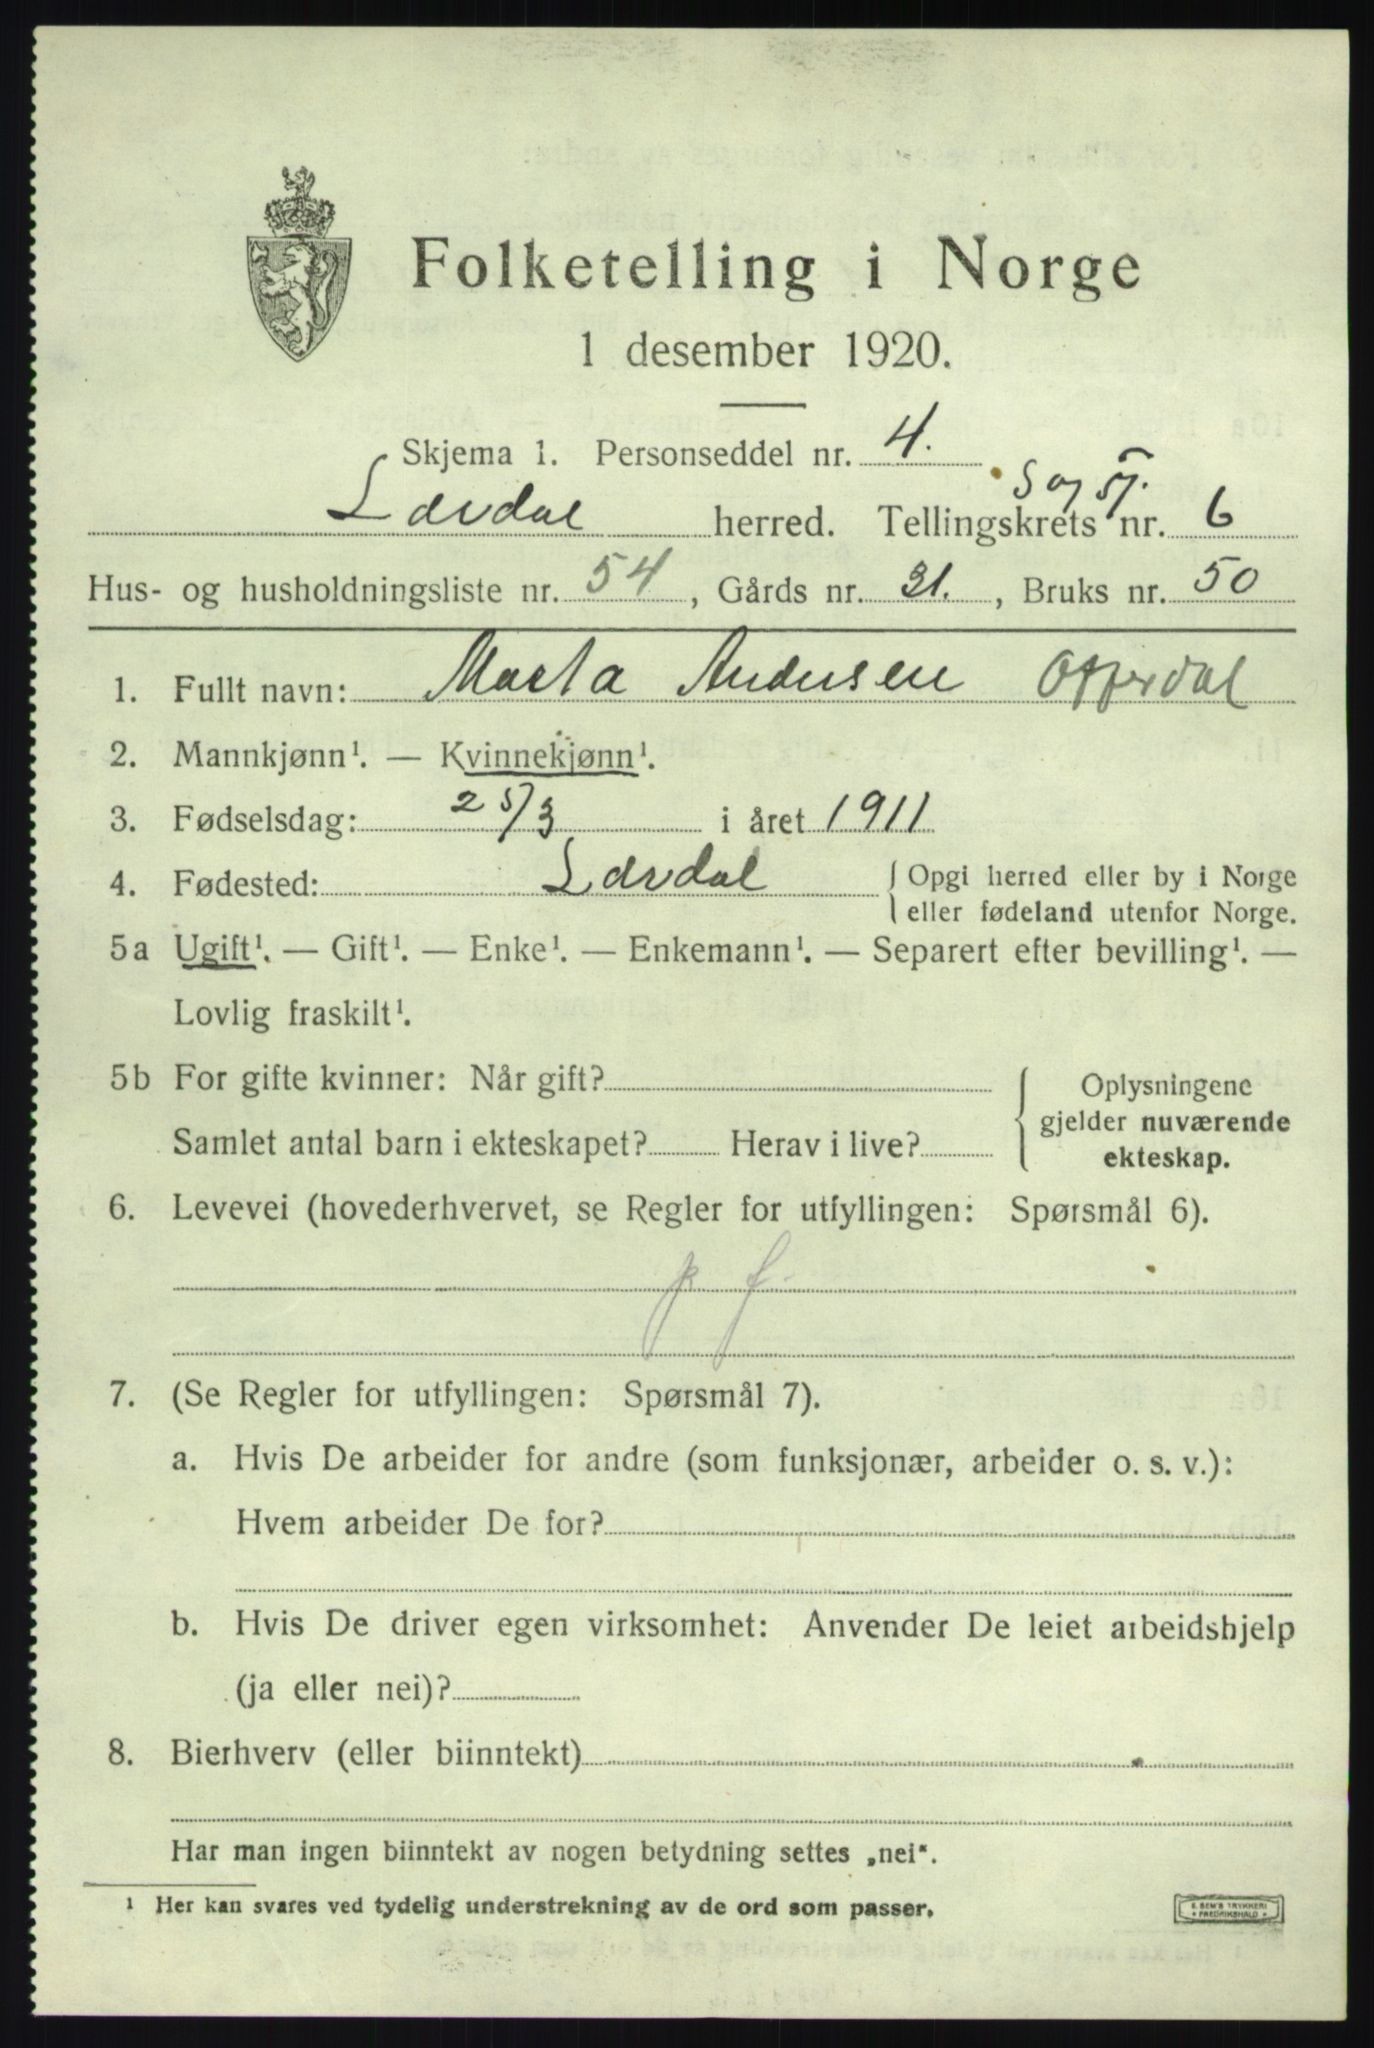 Folketelling i Norge
1 desember 1920.
Skjema 1. Personseddel nr. 4.
S og Sj.
Lærdal herred. Tellingskrets nr. 6
Hus- og husholdningsliste nr. 54, Gårds nr. 31., Bruks nr. 50
1. Fullt navn: Marta Andersen Offerdal
2. Mannkjønn¹. — Kvinnekjønn¹.
3. Fødselsdag: 25/3 i året 1911
4. Fødested: Lærdal { Opgi herred eller by i Norge
eller fødeland utenfor Norge.
5a Ugift¹. — Gift¹. — Enke¹. — Enkemann¹. — Separert efter bevilling¹. —
Lovlig fraskilt¹.
5b For gifte kvinner: Når gift?
Samlet antal barn i ekteskapet? Herav i live?
{ Oplysningene
gjelder nuværende
ekteskap.
6. Levevei (hovederhvervet, se Regler for utfyllingen: Spørsmål 6).
p f.
7. (Se Regler for utfyllingen: Spørsmål 7).
a. Hvis De arbeider for andre (som funksjonær, arbeider o. s. v.):
Hvem arbeider De for?
b. Hvis De driver egen virksomhet: Anvender De leiet arbeidshjelp
(ja eller nei)?
8. Bierhverv (eller biinntekt)
Har man ingen biinntekt av nogen betydning settes „nei“.
¹ Her kan svares ved tydelig understrekning av de ord som passer.
E. SEM'S TRYKKERI
FREDRIKSHALD